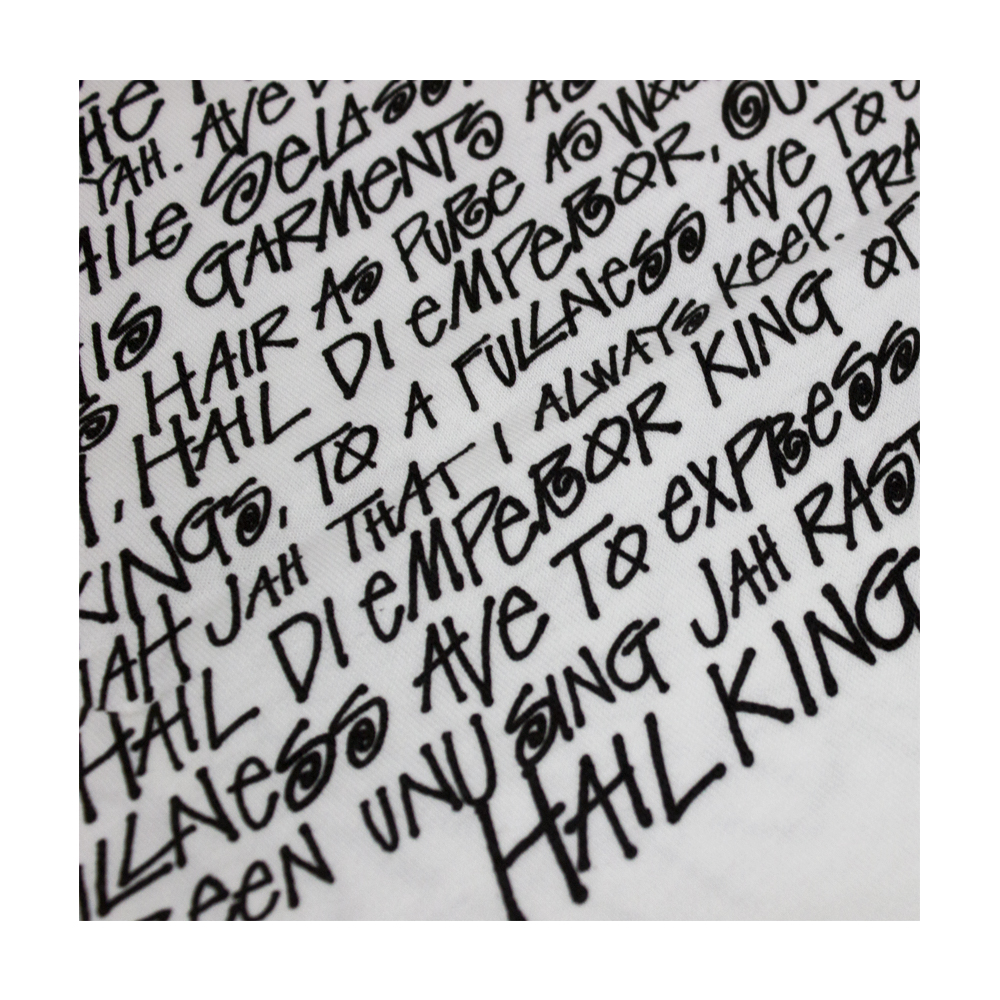 HE
YAH. AVE
AILE SELASS
IS GARMENTS AS
S HAIR AS PURE AS WOO
, HAIL DI EMPEROR, OU
KINGS, TO A FULLNESS AVE TO
JAH JAH THAT I ALWAYS KEEP. PRA
HAIL DI EMPEROR KING OF
LLNESS AVE TO EXPRESS
EEN UNU SING JAH RAST
HAIL KING